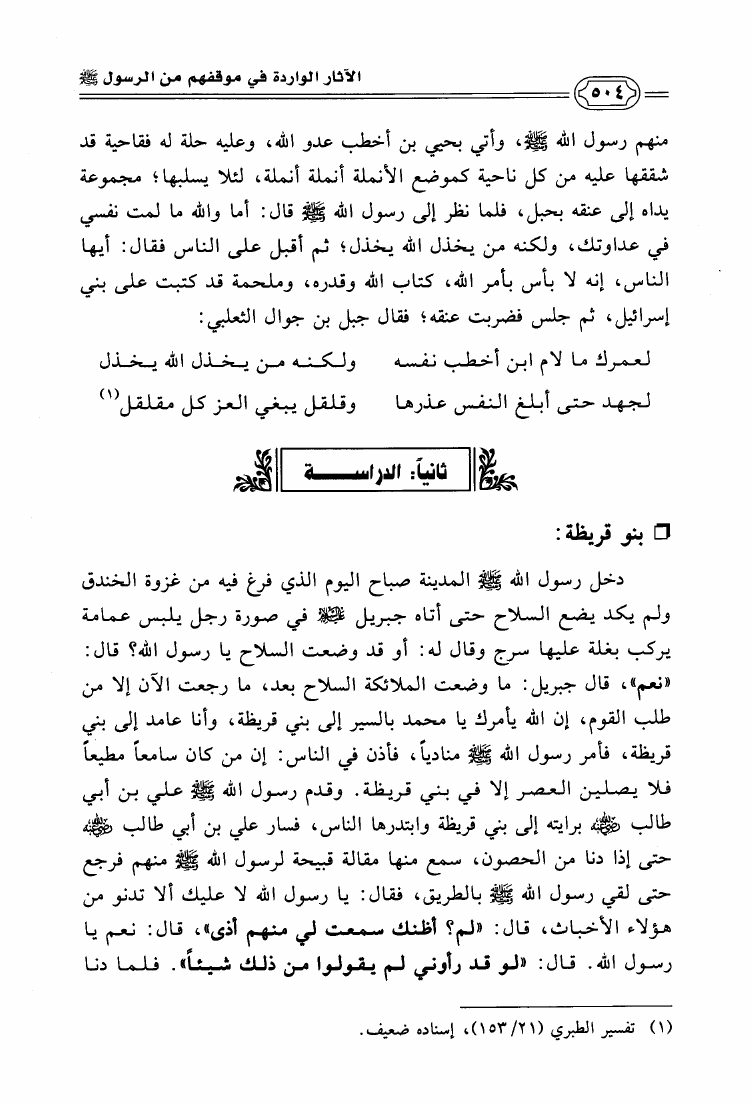 الآثار الواردة في موقفهم من الرسول ﷺ
٥٠٤
منهم رسول الله ﷺ، وأتي بحيي بن أخطب عدو الله، وعليه حلة له فقاحية قد
شققها عليه من كل ناحية كموضع الأنملة أنملة أنملة، لئلا يسلبها؛ مجموعة
يداه إلى عنقه بحبل، فلما نظر إلى رسول الله ﷺ قال: أما والله ما لمت نفسي
في عداوتك، ولكنه من يخذل الله يخذل؛ ثم أقبل على الناس فقال: أيها
الناس، إنه لا بأس بأمر الله، كتاب الله وقدره، وملحمة قد كتبت على بني
إسرائيل، ثم جلس فضربت عنقه؛ فقال جبل بن جوال الثعلبي:
لعمرك ما لام ابن أخطب نفسه ولكنه من يخذل الله يخذل
لجهد حتى أبلغ النفس عذرها وقلقل يبغي العز كل مقلقل(١)
ثانياً: الدراسـة
❒ بنو قريظة:
دخل رسول الله ﷺ المدينة صباح اليوم الذي فرغ فيه من غزوة الخندق
ولم يكد يضع السلاح حتى أتاه جبريل عليه السلام في صورة رجل يلبس عمامة
يركب بغلة عليها سرج وقال له: أو قد وضعت السلاح يا رسول الله؟ قال:
«نعم»، قال جبريل: ما وضعت الملائكة السلاح بعد، ما رجعت الآن إلا من
طلب القوم، إن الله يأمرك يا محمد بالسير إلى بني قريظة، وأنا عامد إلى بني
قريظة، فأمر رسول الله ﷺ منادياً، فأذن في الناس: إن من كان سامعاً مطيعاً
فلا يصلين العصر إلا في بني قريظة. وقدم رسول الله ﷺ علي بن أبي
طالب رضي الله عنه برايته إلى بني قريظة وابتدرها الناس، فسار علي بن أبي طالب رضي الله عنه
حتى إذا دنا من الحصون، سمع منها مقالة قبيحة لرسول الله ﷺ منهم فرجع
حتى لقي رسول الله ﷺ بالطريق، فقال: يا رسول الله لا عليك ألا تدنو من
هؤلاء الأخباث، قال: «لم؟ أظنك سمعت لي منهم أذى»، قال: نعم يا
رسول الله. قال: «لو قد رأوني لم يقولوا من ذلك شيئاً». فلما دنا
(١) تفسير الطبري (١٥٣/٢١)، إسناده ضعيف.